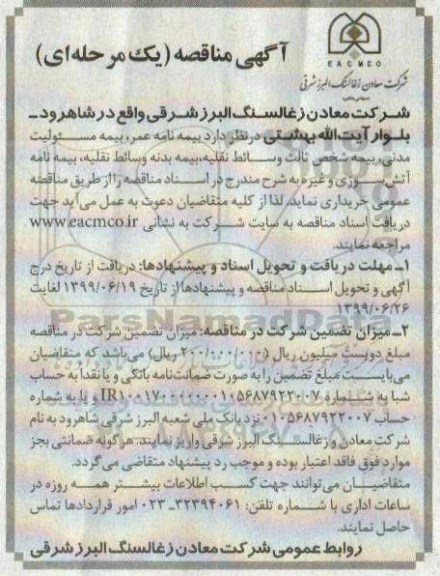 آگهی مناقصه (یک مرحله‌ای)
EACMCO
شرکت معادن زغالسنگ البرز شرقی
شرکت معادن زغالسنگ البرز شرقی واقع در شاهرود ـ
بلوار آیت‌الله بهشتی در نظر دارد بیمه نامه عمر، بیمه مسئولیت
مدنی، بیمه شخص ثالث وسائط نقلیه، بیمه بدنه وسائط نقلیه، بیمه نامه
آتش‌سوزی و غیره به شرح مندرج در اسناد مناقصه را از طریق مناقصه
عمومی خریداری نماید. لذا از کلیه متقاضیان دعوت به عمل می‌آید جهت
دریافت اسناد مناقصه به سایت شرکت به نشانی www.eacmco.ir
مراجعه نمایند.
۱ـ مهلت دریافت و تحویل اسناد و پیشنهادها: دریافت از تاریخ درج
آگهی و تحویل اسناد مناقصه و پیشنهادها از تاریخ ۱۳۹۹/۰۶/۱۹ لغایت
۱۳۹۹/۰۶/۲۶
۲ـ میزان تضمین شرکت در مناقصه: میزان تضمین شرکت در مناقصه
مبلغ دویست میلیون ریال (۲۰۰/۰۰۰/۰۰۰ ریال) می‌باشد که متقاضیان
می‌بایست مبلغ تضمین را به صورت ضمانت‌نامه بانکی و یا نقداً به حساب
شبا به شماره IR۱۰۰۱۷۰۰۰۰۰۰۰۱۰۵۶۸۷۹۲۲۰۰۷ و یا به شماره
حساب ۰۱۰۵۶۸۷۹۲۲۰۰۷ نزد بانک ملی شعبه البرز شرقی شاهرود به نام
شرکت معادن زغالسنگ البرز شرقی واریز نمایند. هرگونه ضمانتی بجز
موارد فوق فاقد اعتبار بوده و موجب رد پیشنهاد متقاضی می‌گردد.
متقاضیان می‌توانند جهت کسب اطلاعات بیشتر همه روزه در
ساعات اداری با شماره تلفن: ۳۲۳۹۴۰۶۱ـ۰۲۳ امور قراردادها تماس
حاصل نمایند.
روابط عمومی شرکت معادن زغالسنگ البرز شرقی
ParsNamadData